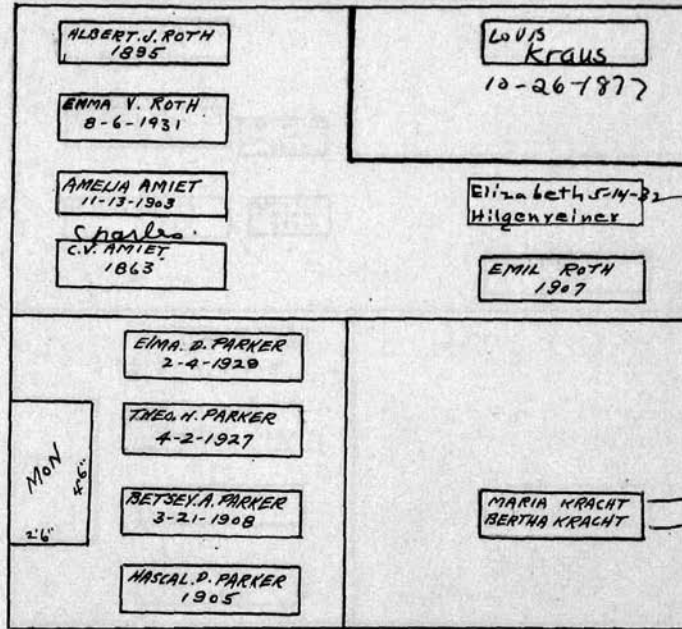 ALBERT. J. ROTH
1895
EMMA V. ROTH
8-6-1931
AMELIA AMIET
11-13-1903
Charles.
C.V. AMIET
1863
LOUIS
Kraus
10-26-1877
Elizabeth 5-14-32
Hilgenreiner
EMIL ROTH
1907
ElMA. D. PARKER
2-4-1929
THEO. H. PARKER
4-2-1927
BETSEY. A. PARKER
3-21-1908
HASCAL. D. PARKER
1905
MON
2'6"
MARIA KRACHT
BERTHA KRACHT